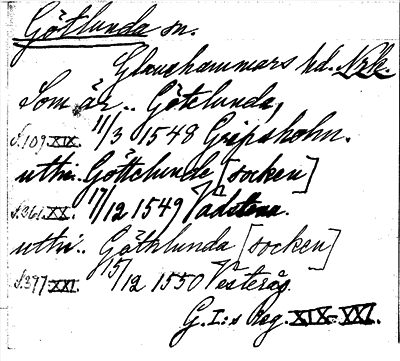 Götlunda sn.
Glanshammars hd. Nrk.
Som är.. Götelunda,
s.109.XIX. 11/3 1548 Gripsholm.
uthi. Göttelunde [socken]
s.361.XX. 17/12 1549 Vadstena.
uthi.. Götklunda [socken]
s.377.XXI. 15/12 1550 Vesterås.
G.I:s Reg. XIX-XXI.